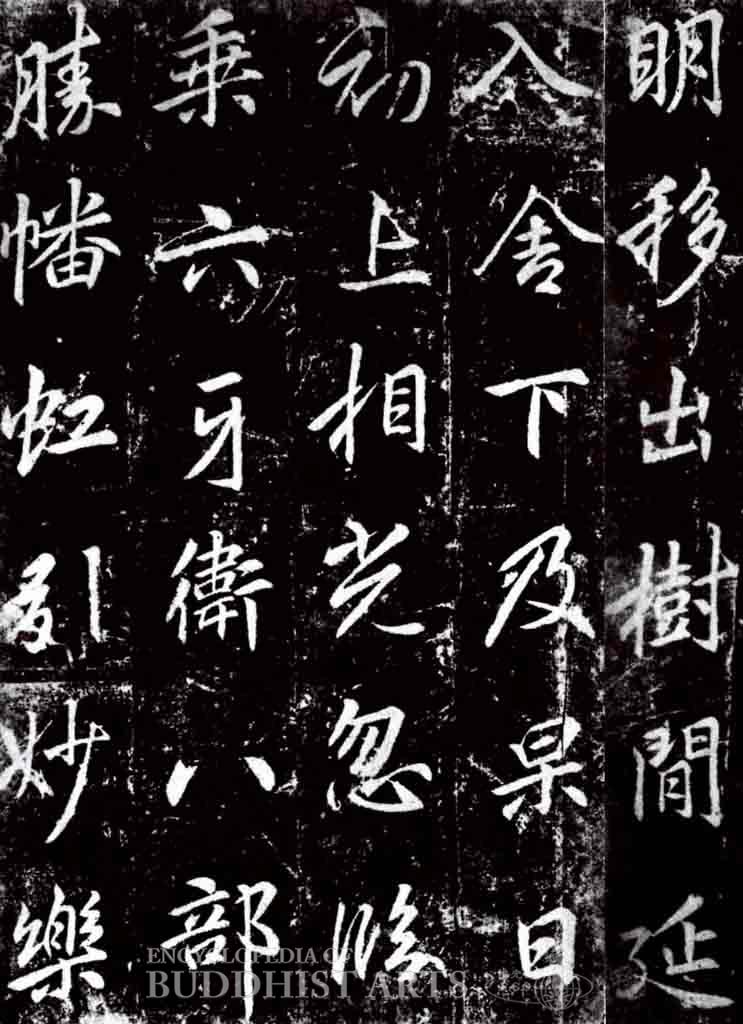 明移出樹間延
入舍下及杲日
初上相光忽臨
乘六牙衛八部
勝幡虹引妙樂
ENCYCLOPEDIA OF
BUDDHIST ARTS